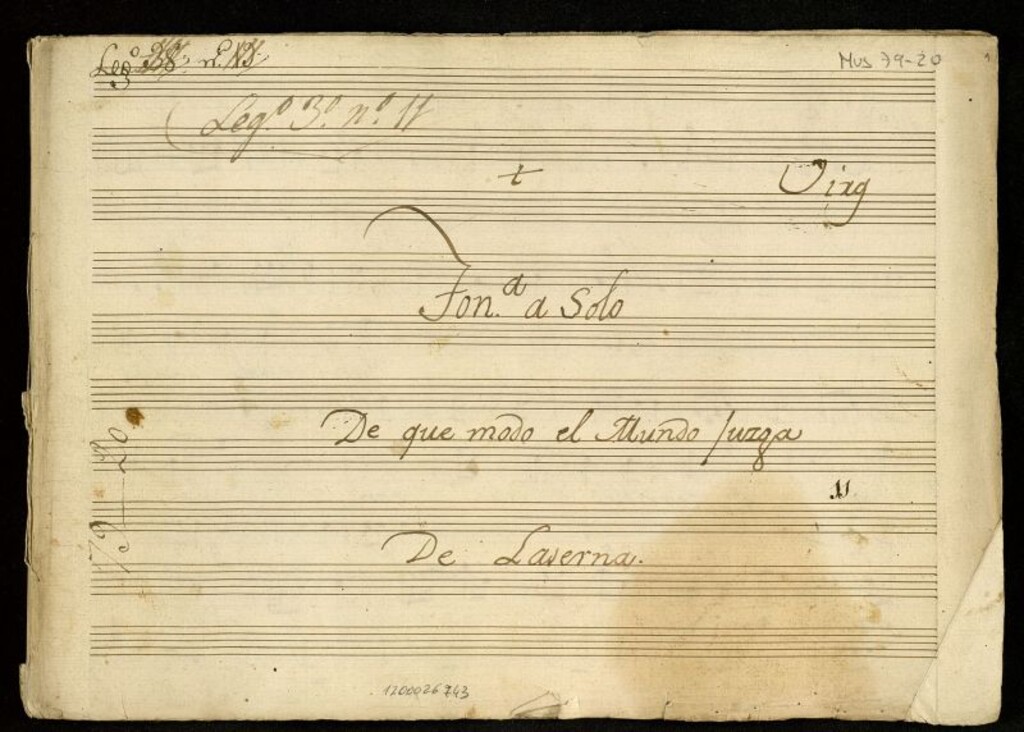 Leg.º
3
Mus 79-20
Leg.º 3.º n.º 11
+
Virg
Ton.ª a Solo
De que modo el Mundo Juzga
11
De Laserna.
79-20
1200026743